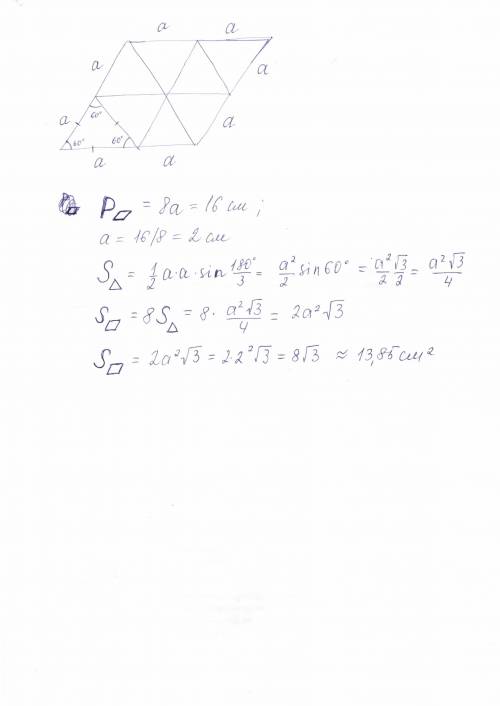 a a
a a
a 60° a
60° 60°
a a
P▱ = 8a = 16 см ;
a = 16/8 = 2 см
S△ = 1/2 a·a·sin 180°/3 = a²/2 sin 60° = a²/2 √3/2 = a²√3/4
S▱ = 8S△ = 8 · a²√3/4 = 2a²√3
S▱ = 2a²√3 = 2·2²√3 = 8√3 ≈ 13,85 см²